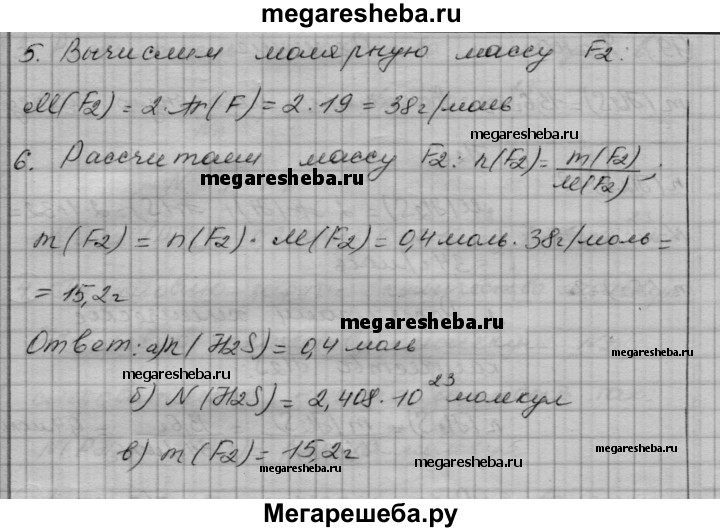 megaresheba.ru
5. Вычислим молярную массу F2:
M(F2) = 2·Ar(F) = 2·19 = 38г/моль
megaresheba.ru
6. Рассчитаем массу F2: n(F2) = m(F2)/M(F2);
megaresheba.ru
m(F2) = n(F2)·M(F2) = 0,4моль·38г/моль =
= 15,2г
megaresheba.ru
Ответ: а) n(H2S) = 0,4 моль
megaresheba.ru
б) N(H2S) = 2,408·10^23 молекул
в) m(F2) = 15,2г
megaresheba.ru
megaresheba.ru
Мегарешеба.ру